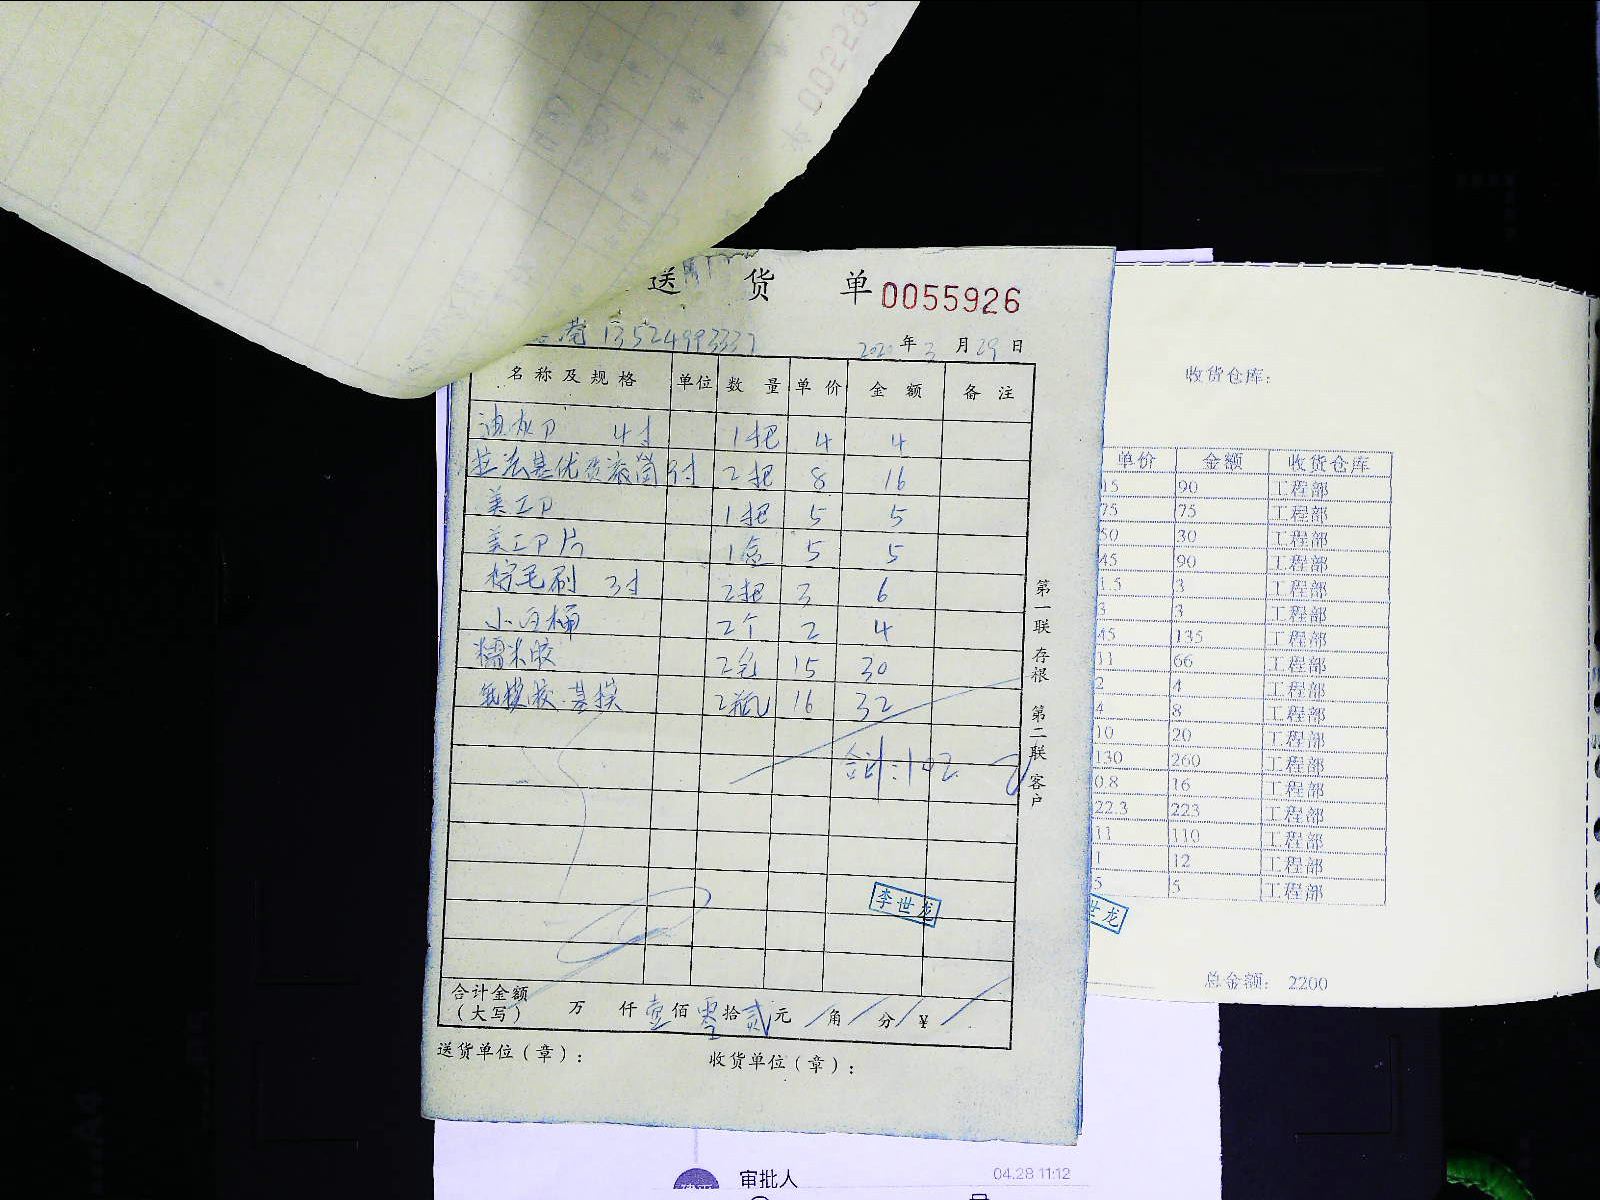 送 货 单 0055926
13524993337
年 3 月 29 日
名称及规格 单位 数量 单价 金额 备注
油灰刀 4寸 1把 4 4
拉法基优质滚筒 2把 8 16
美工刀 1把 5 5
美工刀片 1盒 5 5
棕毛刷 3寸 2把 3 6
小白桶 2个 2 4
糯米胶 15 30
基膜 2瓶 16 32
合计:102
李世龙
合计金额(大写) 万 仟 壹 佰 零 拾 贰 元 角 分 ¥
送货单位(章): 收货单位(章):
第一联 存根 第二联 客户
收货仓库:
单价 金额 收货仓库
15 90 工程部
75 75 工程部
50 30 工程部
45 90 工程部
1.5 3 工程部
3 3 工程部
45 135 工程部
11 66 工程部
2 4 工程部
4 8 工程部
10 20 工程部
130 260 工程部
0.8 16 工程部
22.3 223 工程部
11 110 工程部
1 12 工程部
5 5 工程部
世龙
总金额: 2200
审批人 04.28 11:12